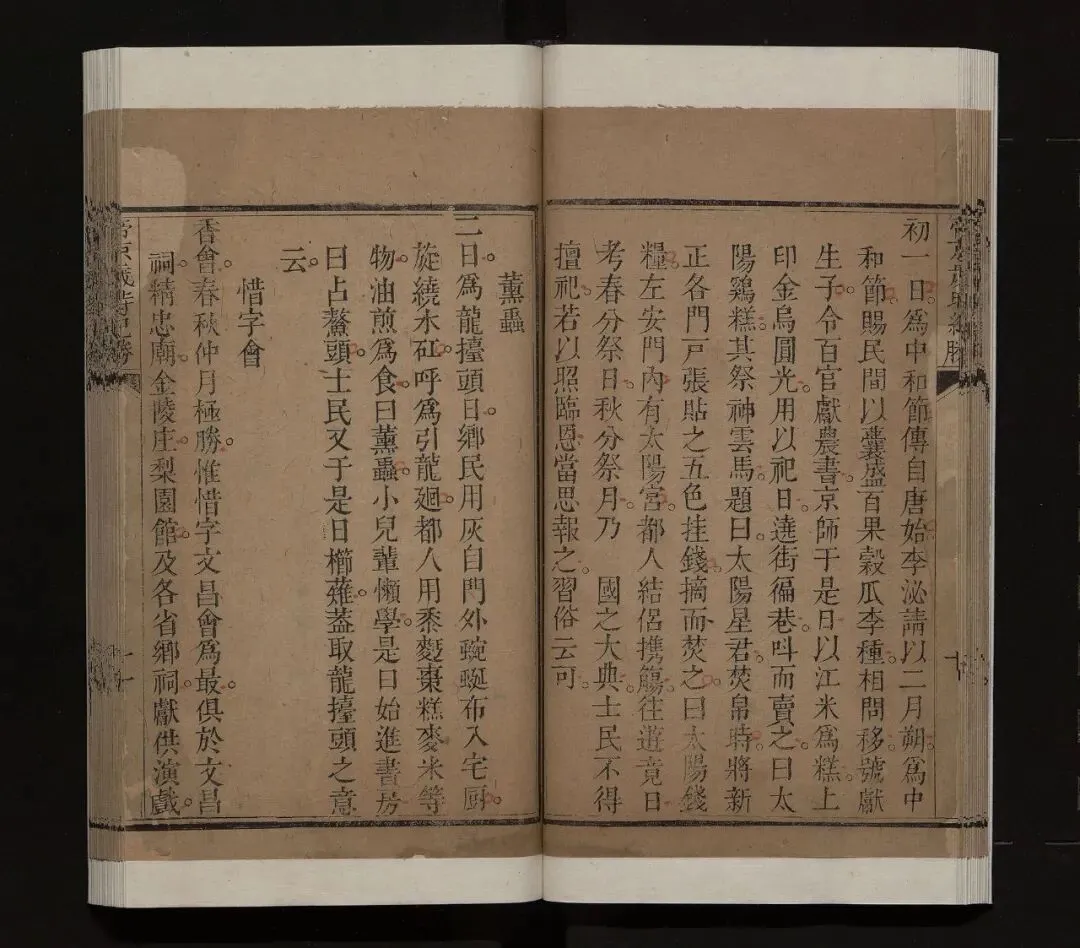 初一日爲中和節傳自唐始李泌請以二月朔爲中
和節賜民間以囊盛百果穀瓜李種相問移號獻
生子令百官獻農書京師于是日以江米爲糕上
印金烏圓光用以祀日遶街徧巷呌而賣之曰太
陽鷄糕其祭神雲馬題曰太陽星君焚帛時將新
正各門戸張貼之五色挂錢摘而焚之曰太陽錢
糧左安門內有太陽宮都人結侶携觴往遊竟日
考春分祭日秋分祭月乃 國之大典士民不得
擅祀若以照臨恩當思報之習俗云可
薰蟲
二日爲龍擡頭日鄉民用灰自門外蜿蜒布入宅厨
旋繞水缸呼爲引龍廻都人用黍麪棗糕麥米等
物油煎爲食曰薰蟲小兒輩懶學是日始進書房
曰占鰲頭士民又于是日櫛薙蓋取龍擡頭之意
云
惜字會
香會春秋仲月極勝惟惜字文昌會爲最俱於文昌
祠精忠廟金陵庄梨園館及各省鄉祠獻供演戲
帝京歲時紀勝
十一